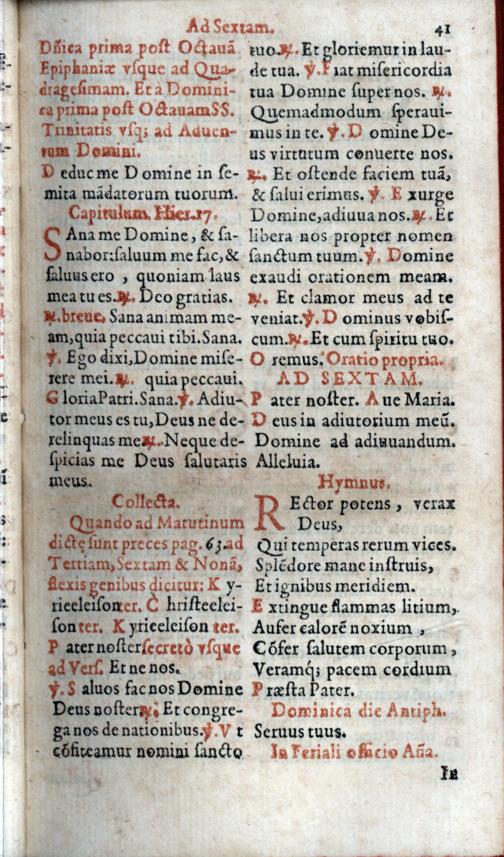 Ad Sextam.
41
Dñica prima post Octauã
Epiphaniæ vsque ad Qua-
dragesimam. Et à Domini-
ca prima post OctauamSS.
Trinitatis vsq; ad Aduen-
tum Domini.
D educ me Domine in se-
mita mãdatorum tuorum.
Capitulum. Hier.17.
SAna me Domine, & sa-
nabor: saluum me fac, &
saluus ero , quoniam laus
mea tu es. ℟. Deo gratias.
℟.breue. Sana animam me-
am, quia peccaui tibi. Sana.
℣. Ego dixi, Domine mise-
rere mei. ℟. quia peccaui.
GloriaPatri. Sana. ℣. Adiu-
tor meus es tu, Deus ne de-
relinquas me ℟. Neque de-
spicias me Deus salutaris
meus.
Collecta.
Quando ad Matutinum
dictę sunt preces pag. 63. ad
Tertiam, Sextam & Nonã,
flexis genibus dicitur: K y-
rieeleison ter. C hristeelei-
son ter. K yrieeleison ter.
P ater noster secretò vsque
ad Vers. Et ne nos.
℣. S aluos fac nos Domine
Deus noster ℟. Et congre-
ga nos de nationibus. ℣. V t
cõfiteamur nomini sancto
tuo. ℟. Et gloriemur in lau-
de tua. ℣. Fiat misericordia
tua Domine super nos. ℟.
Quemadmodum speraui-
mus in te. ℣. D omine De-
us virtutum conuerte nos.
℟. Et ostende faciem tuã,
& salui erimus. ℣. E xurge
Domine, adiuua nos. ℟. Et
libera nos propter nomen
sanctum tuum. ℣. Domine
exaudi orationem meam.
℟. Et clamor meus ad te
veniat. ℣. D ominus vobis-
cum. ℟. Et cum spiritu tuo.
O remus. Oratio propria.
AD SEXTAM.
P ater noster. A ue Maria.
D eus in adiutorium meũ.
Domine ad adiuuandum.
Alleluia.
Hymnus.
REctor potens , verax
Deus,
Qui temperas rerum vices.
Splẽdore mane instruis,
Et ignibus meridiem.
E xtingue flammas litium,
Aufer calorẽ noxium ,
Cõfer salutem corporum,
Veramq; pacem cordium
P ræsta Pater.
Dominica die Antiph.
Seruus tuus.
In Feriali officio Aña.
In